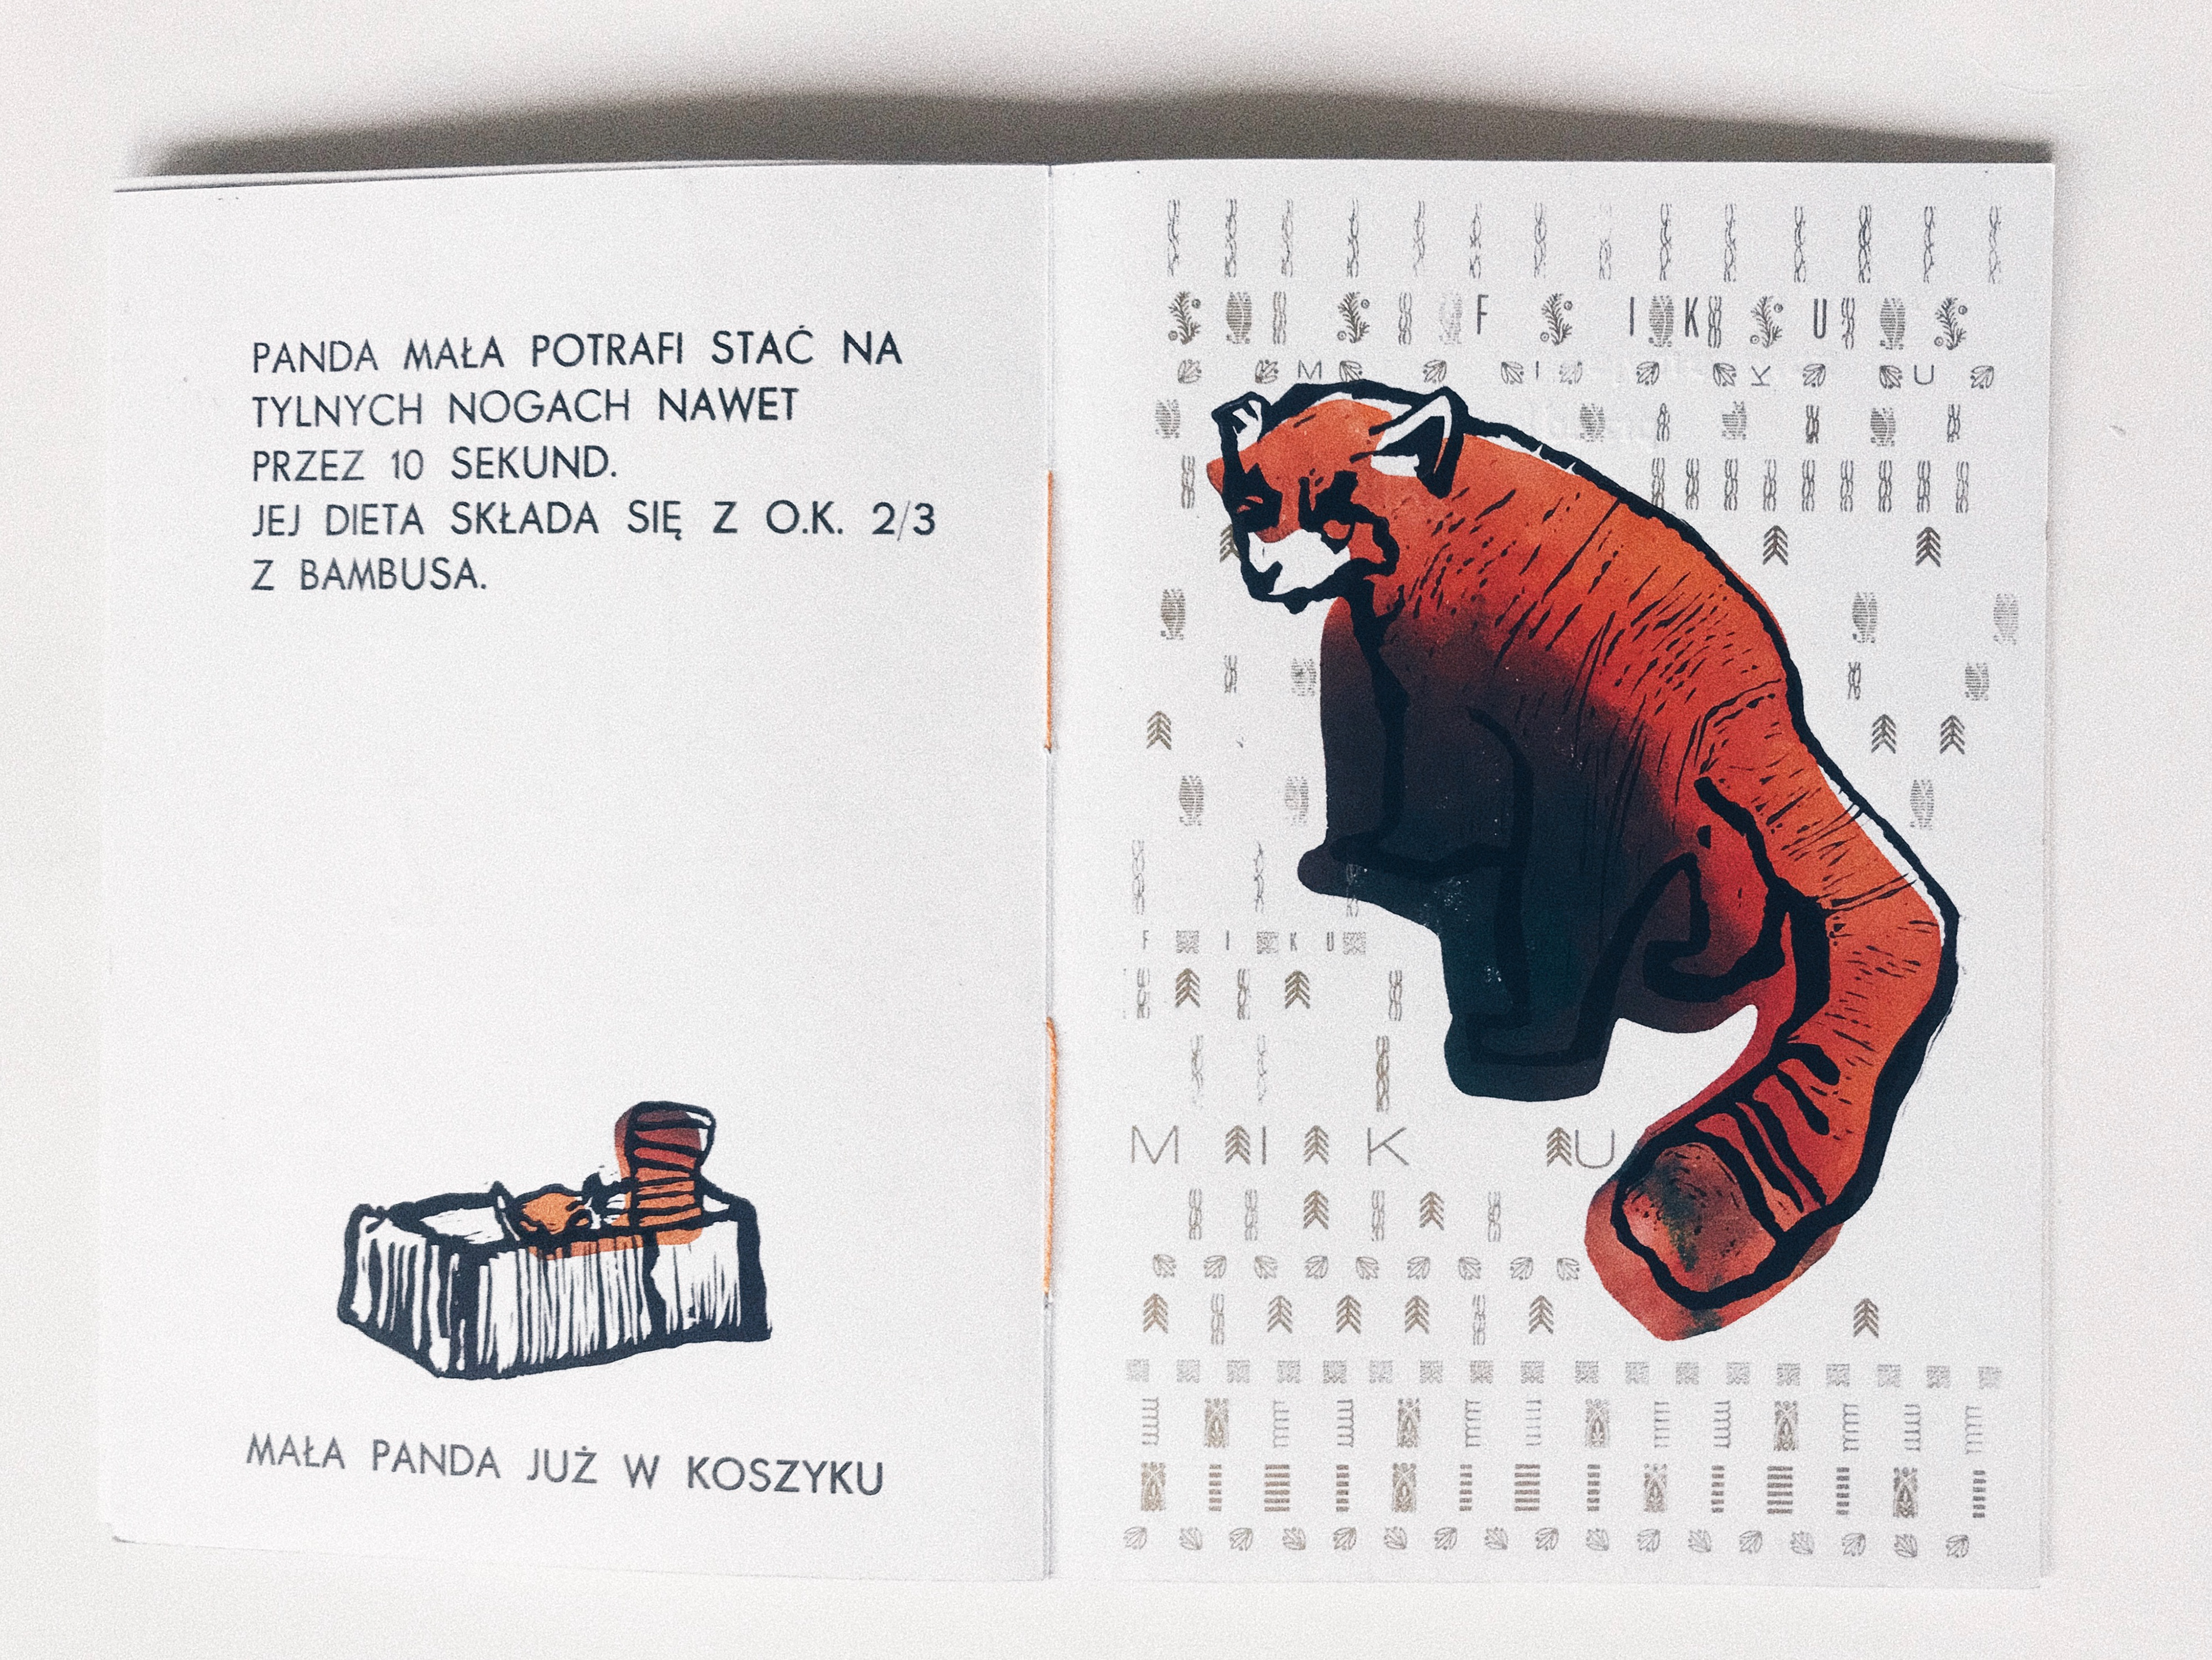 PANDA MAŁA POTRAFI STAĆ NA
TYLNYCH NOGACH NAWET
PRZEZ 10 SEKUND.
JEJ DIETA SKŁADA SIĘ Z O.K. 2/3
Z BAMBUSA.
MAŁA PANDA JUŻ W KOSZYKU
F I K U
M I K U
F I K U
M I K U